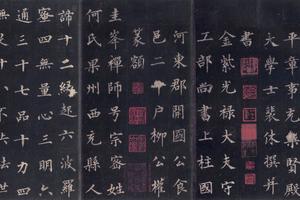 平章事充集賢殿
大學士裴休撰并
書
金紫光祿大夫守
工部尚書上柱國
河東郡開國公食
邑二千戶柳公權
篆額
圭峯禪師號宗密姓
何氏果州西充縣人
諦十二緣起六波羅
蜜四無量心三明六
通三十七品十力四
十八不共法世